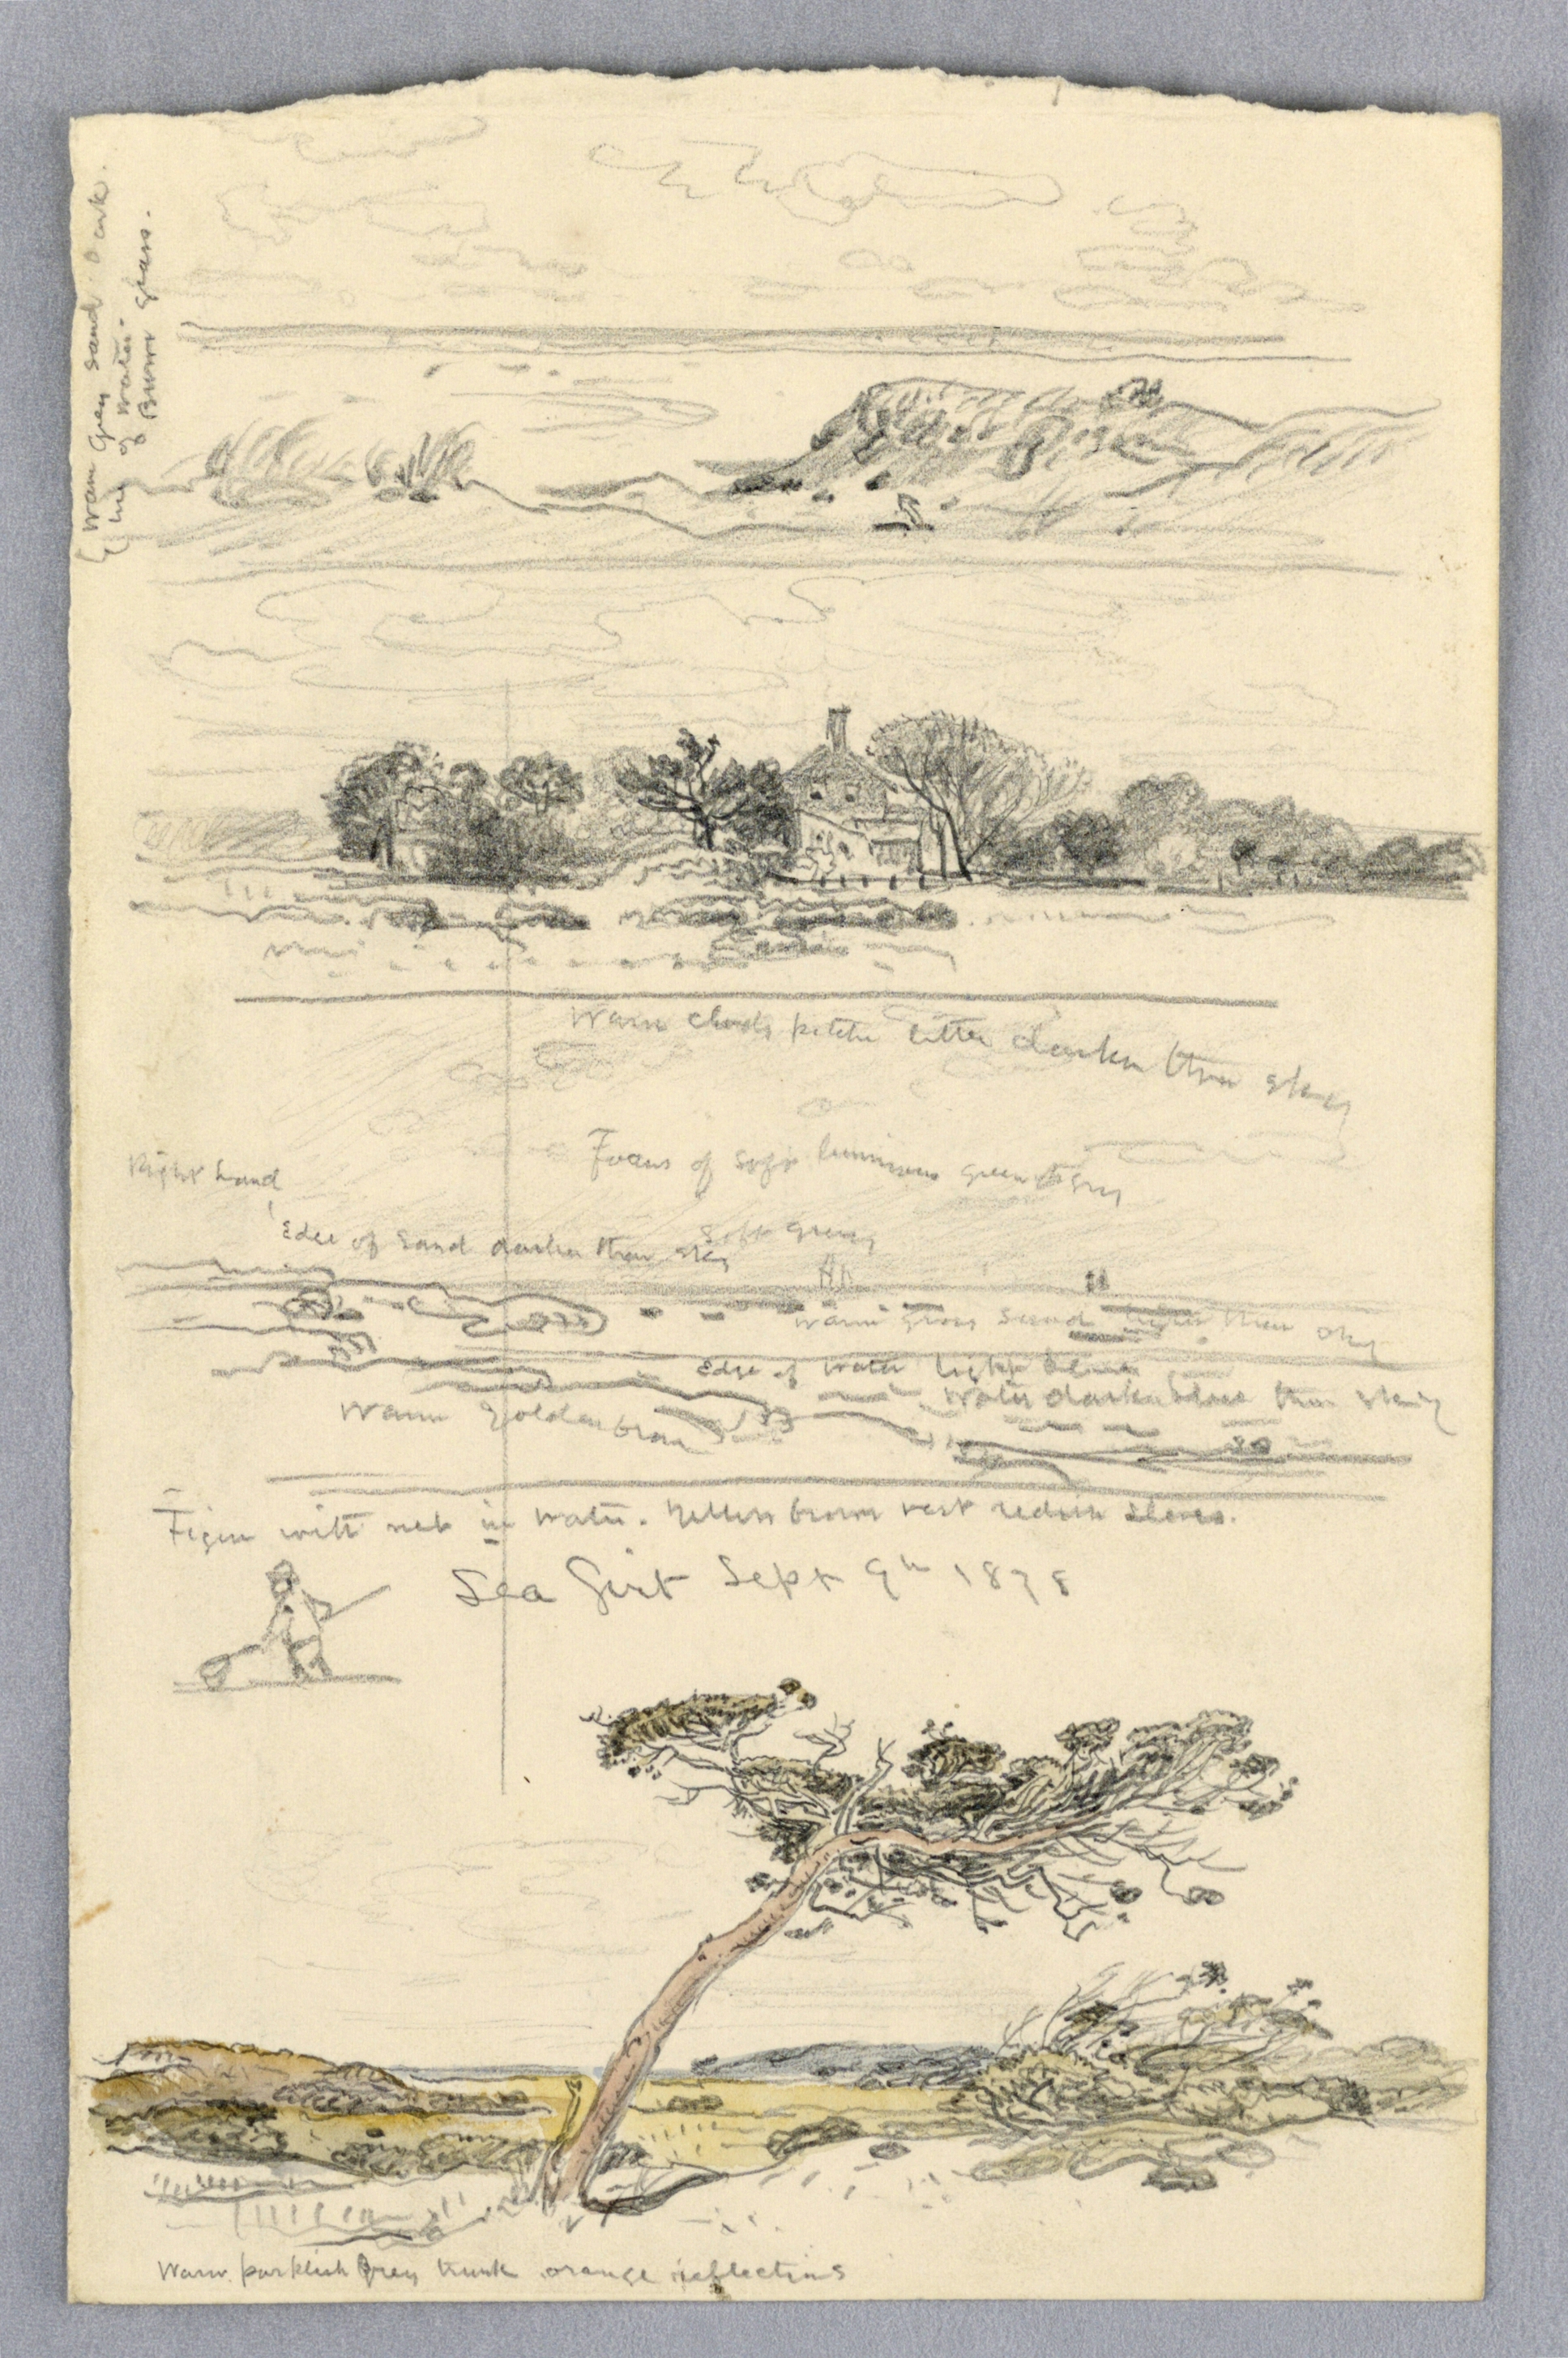 Warm grey sand. Dark
line of water.
Burnt grass.
Warm clouds little darker than sky
Focus of soft luminous green grey
Right hand
Edge of sand darker than sky
Soft grey
Warm grey sand lighter than sky
Edge of water light blue
Water darker blue than sky
Warm golden
Figure with net in water. Yellow brown vest redish
Sea Girt Sept 9th 1878
Warm purklish Grey trunk orange reflections